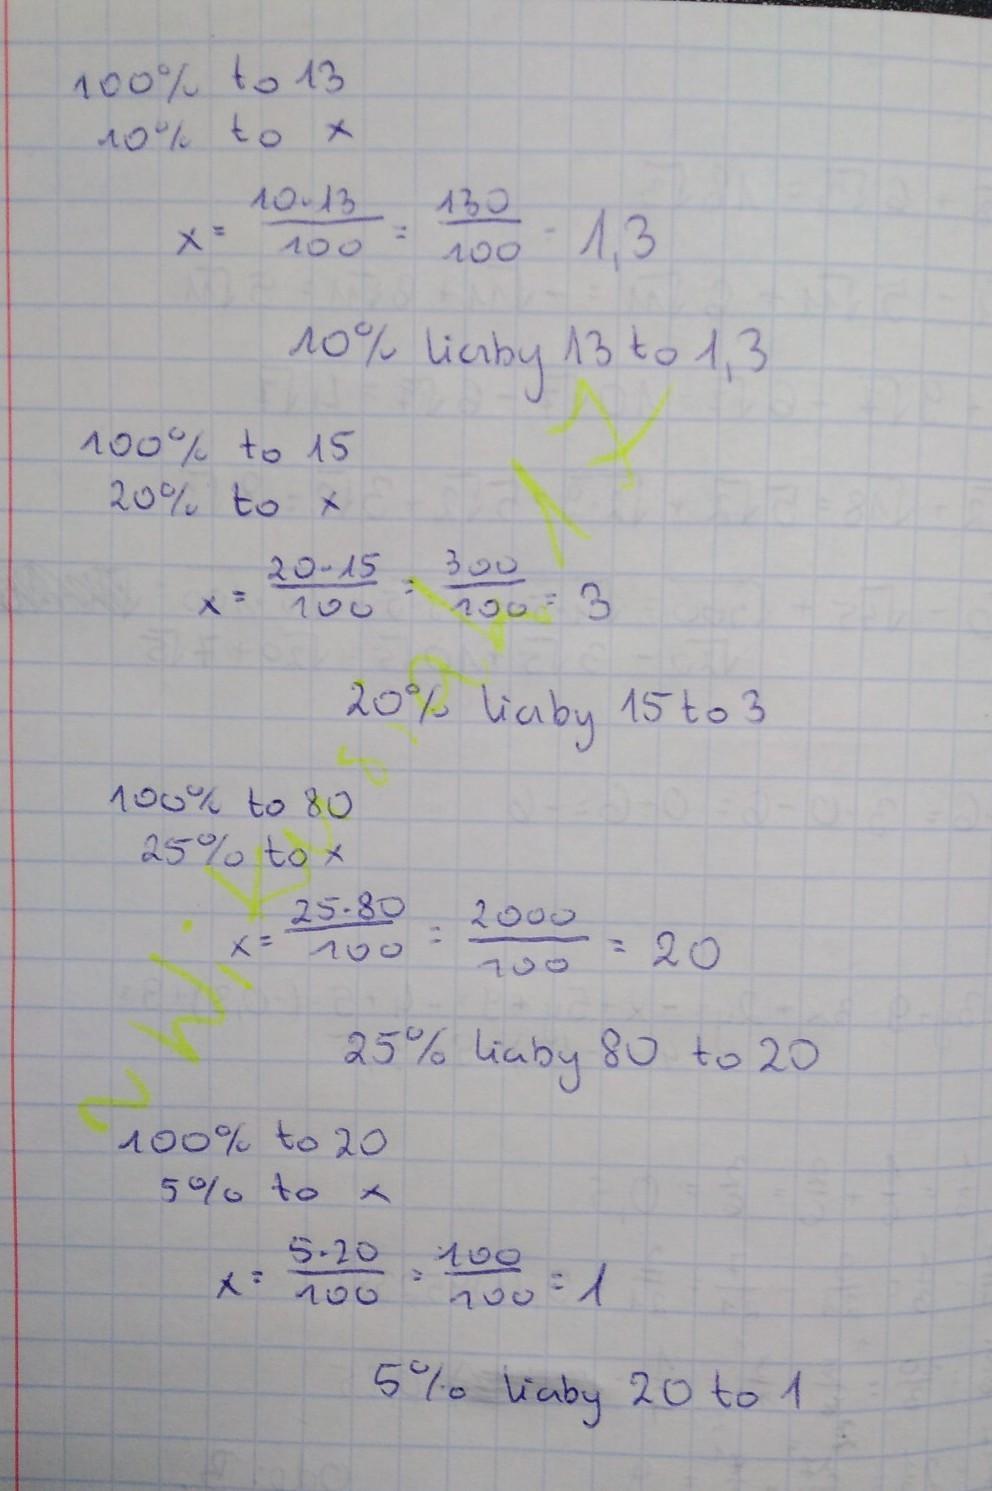 100% to 13
10% to x
x = 10·13/100 = 130/100 = 1,3
10% liczby 13 to 1,3
100% to 15
20% to x
x = 20·15/100 = 300/100 = 3
20% liczby 15 to 3
100% to 80
25% to x
x = 25·80/100 = 2000/100 = 20
25% liczby 80 to 20
100% to 20
5% to x
x = 5·20/100 = 100/100 = 1
5% liczby 20 to 1